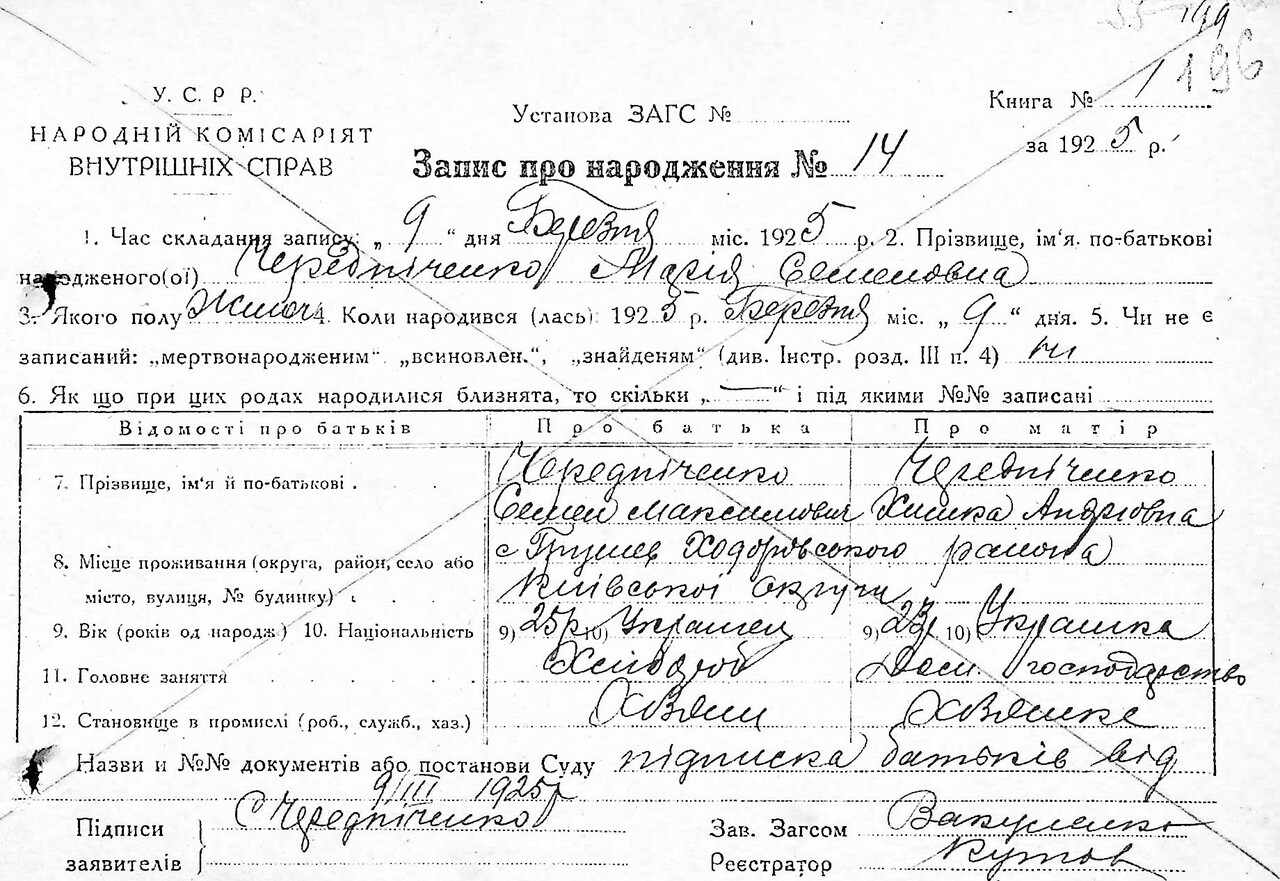 199
196
У. С. Р Р.
НАРОДНІЙ КОМІСАРІЯТ
ВНУТРІШНІХ СПРАВ
Установа ЗАГС №
Книга № 1
за 1925 р.
Запис про народження № 14
1. Час складання запису: „ 9 “ дня Березня міс. 1925 р. 2. Прізвище, ім'я. по-батькові
народженого(ої) Чередніченко Марія Семеновна
3. Якого полу Жіноч 4. Коли народився (лась) 1925 р. Березня міс. „ 9 “ дня. 5. Чи не є
записаний: „мертвонародженим“ „всиновлен.“, „знайденям“ (див. Інстр. розд. III п. 4) ні
6. Як що при цих родах народилися близнята, то скільки „ — “ і під якими №№ записані
Відомості про батьків Про батька Про матір
7. Прізвище, ім'я й по-батькові . Чередніченко Чередніченко
Семен Максимович Химка Андріовна
8. Місце проживання (округа, район, село або с Грушев Ходорівського района
місто, вулиця, № будинку) Київської округи
9. Вік (років од народж) 10. Національність 9) 25р 10) Украінец 9) 23р 10) Украінка
11. Головне заняття Хлібороб Дом. господарство
12. Становище в промислі (роб., служб., хаз.) Хазяін
Назви и №№ документів або постанови Суду підписка батьків від
9/III 1925р
Підписи заявителів С Чередніченко
Зав. Загсом Вакуленко
Реєстратор